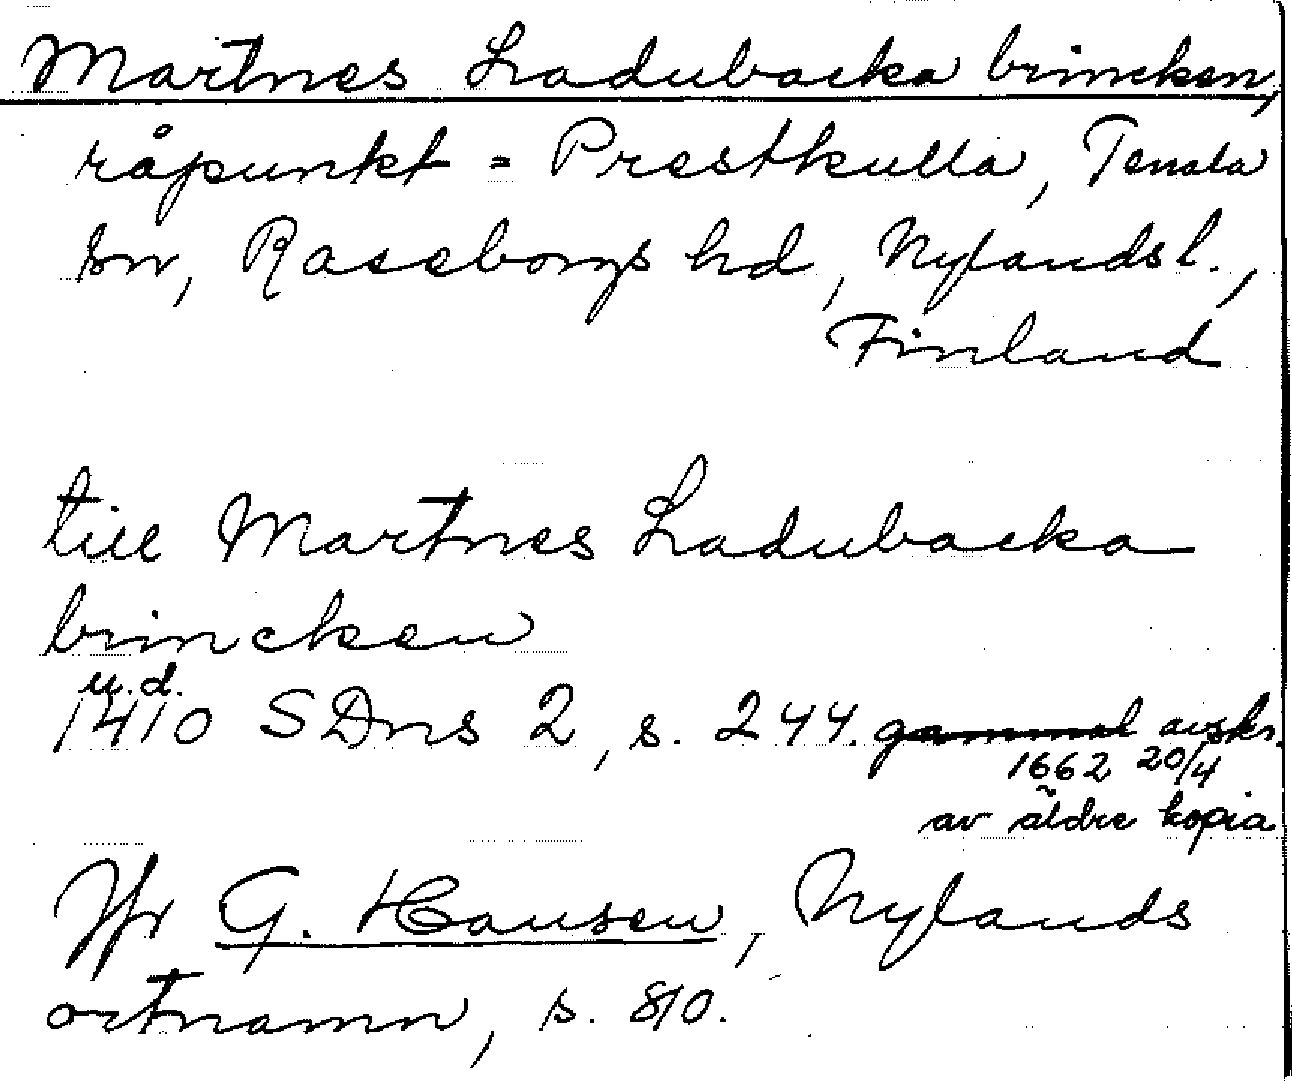 Martnes Ladubacka brincken,
råpunkt = Prestkulla, Tenala
sn, Raseborgs hd, Nylands l.,
Finland
till Martnes Ladubacka
brincken
u.d.
1410 SDns 2, s. 244. gammal avskr.
1662 20/4
av äldre kopia
Jfr G. Hausen, Nylands
ortnamn, s. 810.